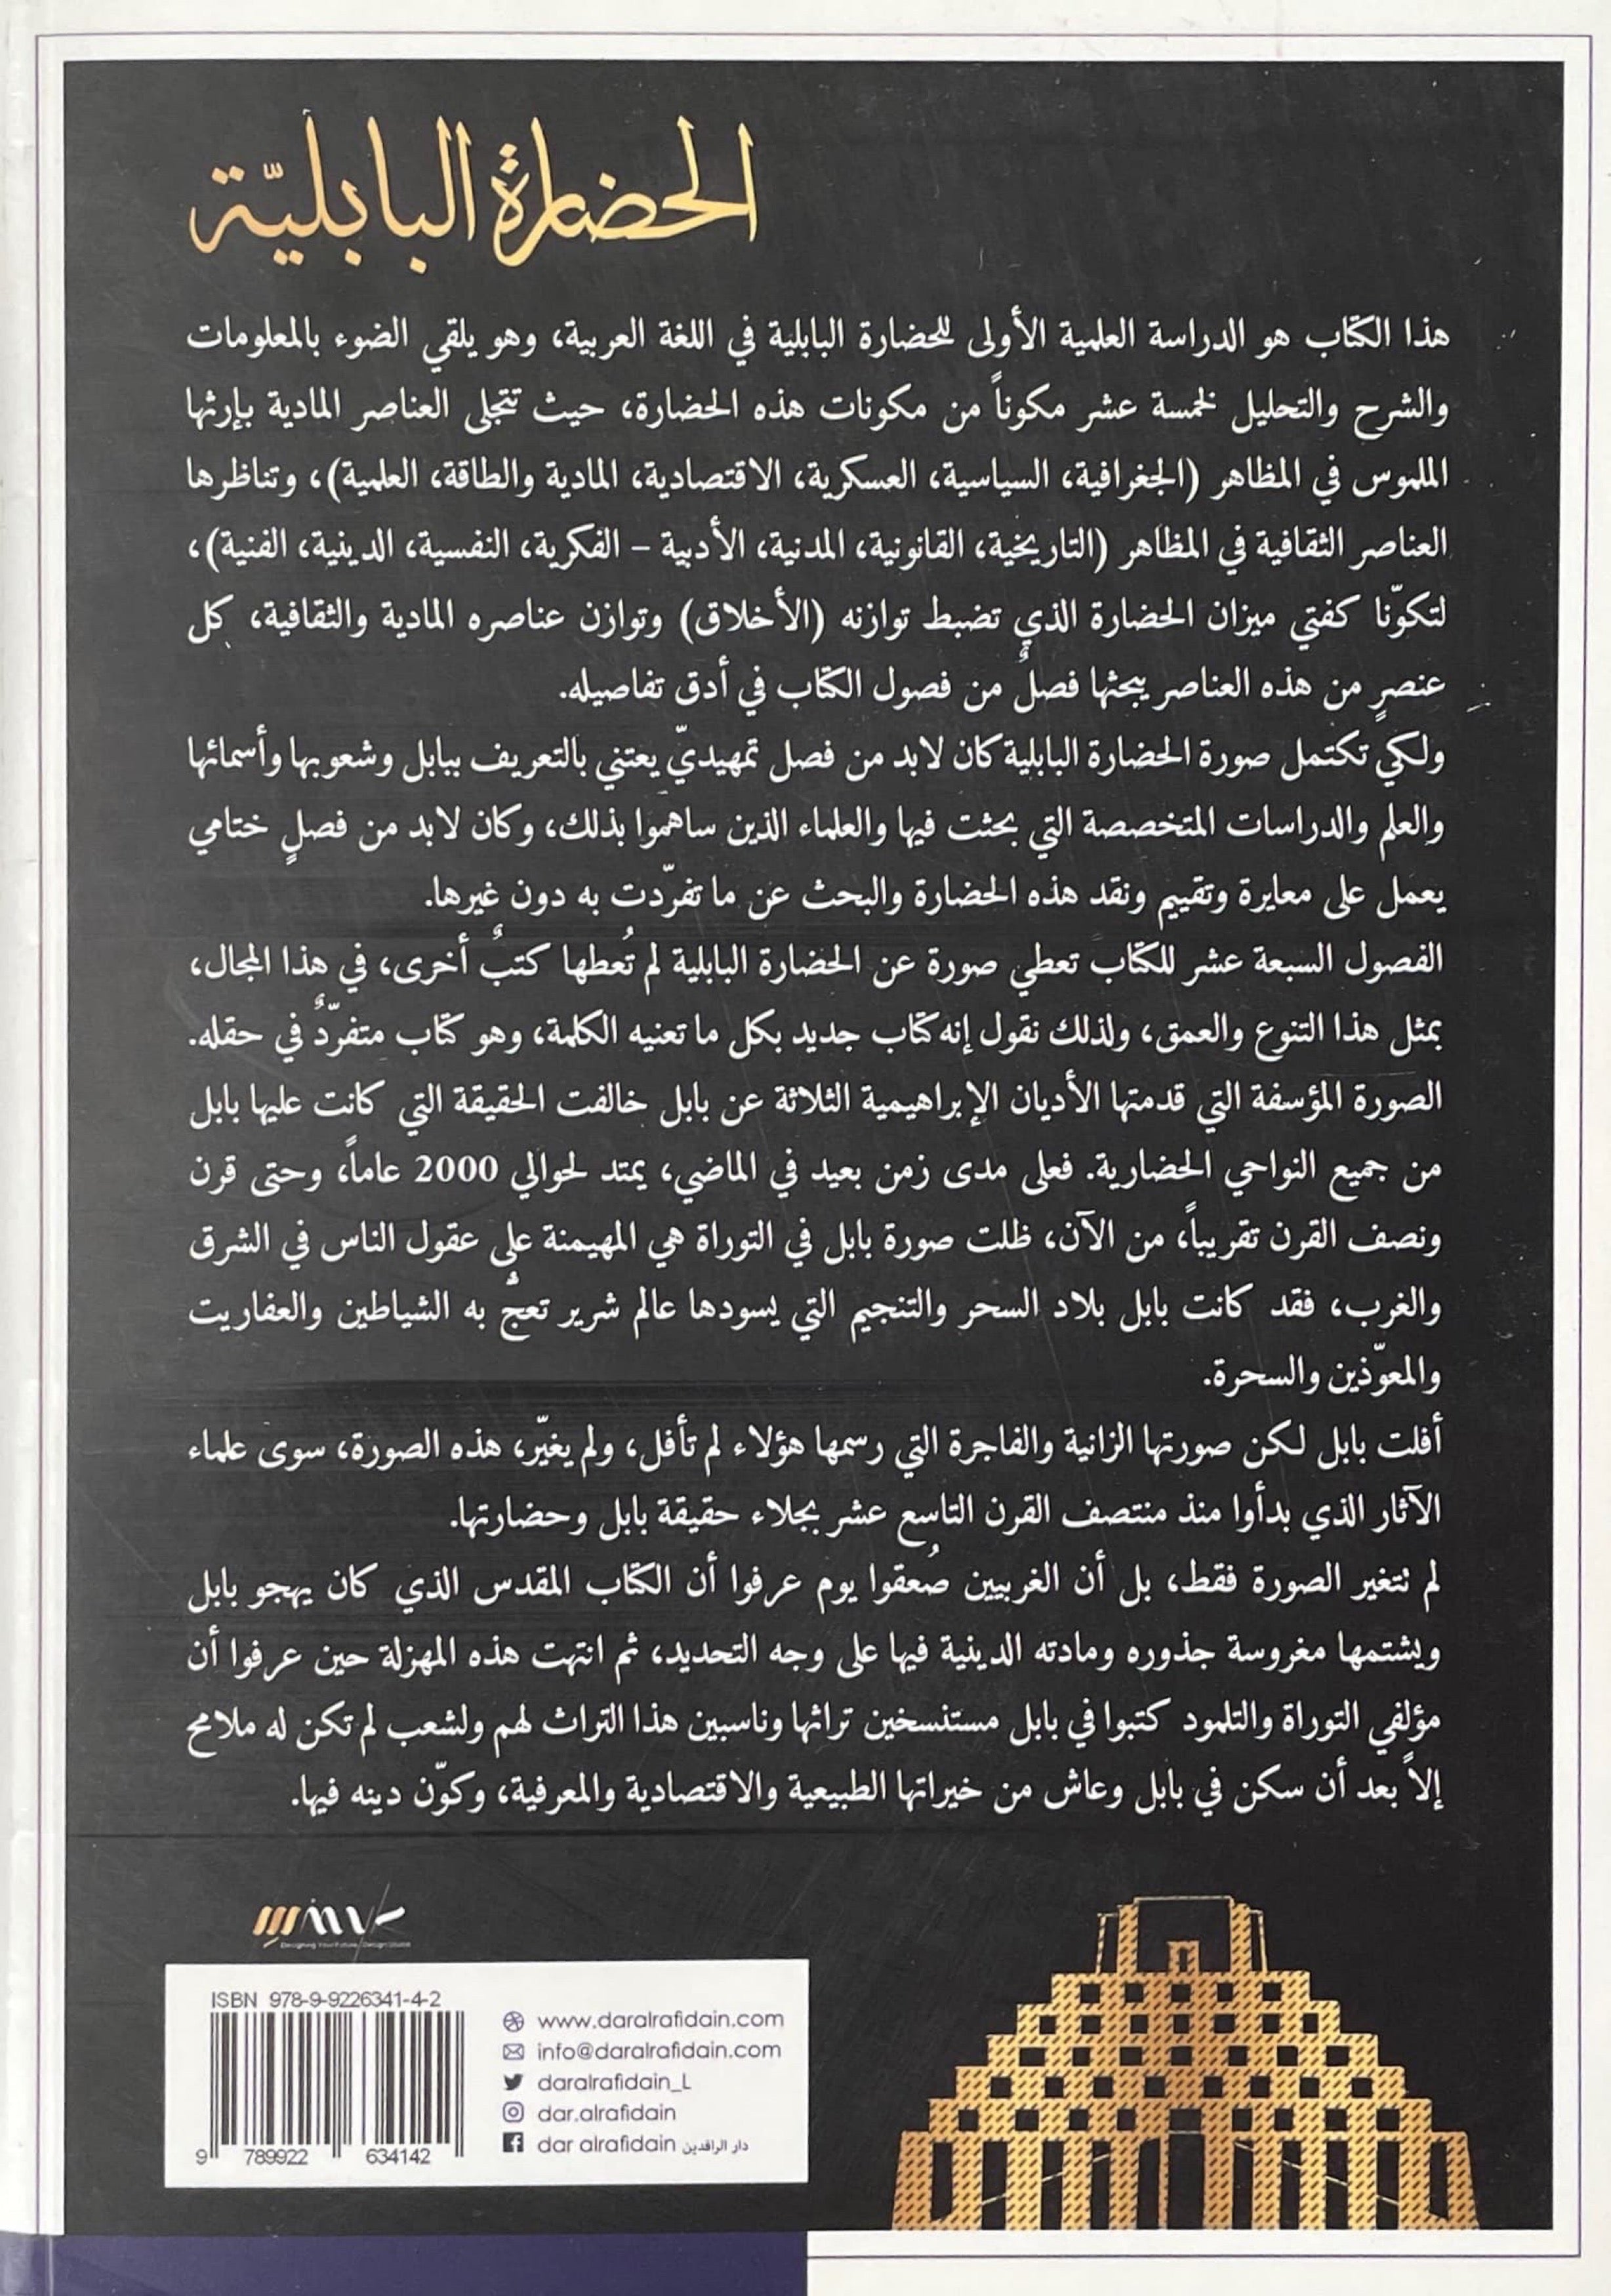 الحضارة البابليّة
هذا الكتاب هو الدراسة العلمية الأولى للحضارة البابلية في اللغة العربية، وهو يلقي الضوء بالمعلومات
والشرح والتحليل لخمسة عشر مكوناً من مكونات هذه الحضارة، حيث تتجلى العناصر المادية بإرثها
الملموس في المظاهر (الجغرافية، السياسية، العسكرية، الاقتصادية، المادية والطاقة، العلمية)، وتناظرها
العناصر الثقافية في المظاهر (التاريخية، القانونية، المدنية، الأدبية – الفكرية، النفسية، الدينية، الفنية)،
لتكوّنا كفتي ميزان الحضارة الذي تضبط توازنه (الأخلاق) وتوازن عناصره المادية والثقافية، كل
عنصرٍ من هذه العناصر يبحثها فصلٌ من فصول الكتاب في أدق تفاصيله.
ولكي تكتمل صورة الحضارة البابلية كان لابد من فصل تمهيديّ يعتني بالتعريف ببابل وشعوبها وأسمائها
والعلم والدراسات المتخصصة التي بحثت فيها والعلماء الذين ساهموا بذلك، وكان لابد من فصلٍ ختامي
يعمل على معايرة وتقييم ونقد هذه الحضارة والبحث عن ما تفرّدت به دون غيرها.
الفصول السبعة عشر للكتاب تعطي صورة عن الحضارة البابلية لم تُعطها كتبٌ أخرى، في هذا المجال،
بمثل هذا التنوع والعمق، ولذلك نقول إنه كتاب جديد بكل ما تعنيه الكلمة، وهو كتاب متفرّدٌ في حقله.
الصورة المؤسفة التي قدمتها الأديان الإبراهيمية الثلاثة عن بابل خالفت الحقيقة التي كانت عليها بابل
من جميع النواحي الحضارية. فعلى مدى زمن بعيد في الماضي، يمتد لحوالي 2000 عاماً، وحتى قرن
ونصف القرن تقريباً، من الآن، ظلت صورة بابل في التوراة هي المهيمنة على عقول الناس في الشرق
والغرب، فقد كانت بابل بلاد السحر والتنجيم التي يسودها عالم شرير تعجُّ به الشياطين والعفاريت
والمعوّذين والسحرة.
أفلت بابل لكن صورتها الزانية والفاجرة التي رسمها هؤلاء لم تأفل، ولم يغيّر، هذه الصورة، سوى علماء
الآثار الذي بدأوا منذ منتصف القرن التاسع عشر بجلاء حقيقة بابل وحضارتها.
لم تتغير الصورة فقط، بل أن الغربيين صُعقوا يوم عرفوا أن الكتاب المقدس الذي كان يهجو بابل
ويشتمها مغروسة جذوره ومادته الدينية فيها على وجه التحديد، ثم انتهت هذه المهزلة حين عرفوا أن
مؤلفي التوراة والتلمود كتبوا في بابل مستنسخين تراثها وناسبين هذا التراث لهم ولشعب لم تكن له ملامح
إلاّ بعد أن سكن في بابل وعاش من خيراتها الطبيعية والاقتصادية والمعرفية، وكوّن دينه فيها.
ISBN 978-9-9226341-4-2
9 789922 634142
www.daralrafidain.com
info@daralrafidain.com
daralrafidain_L
dar.alrafidain
dar alrafidain دار الرافدين